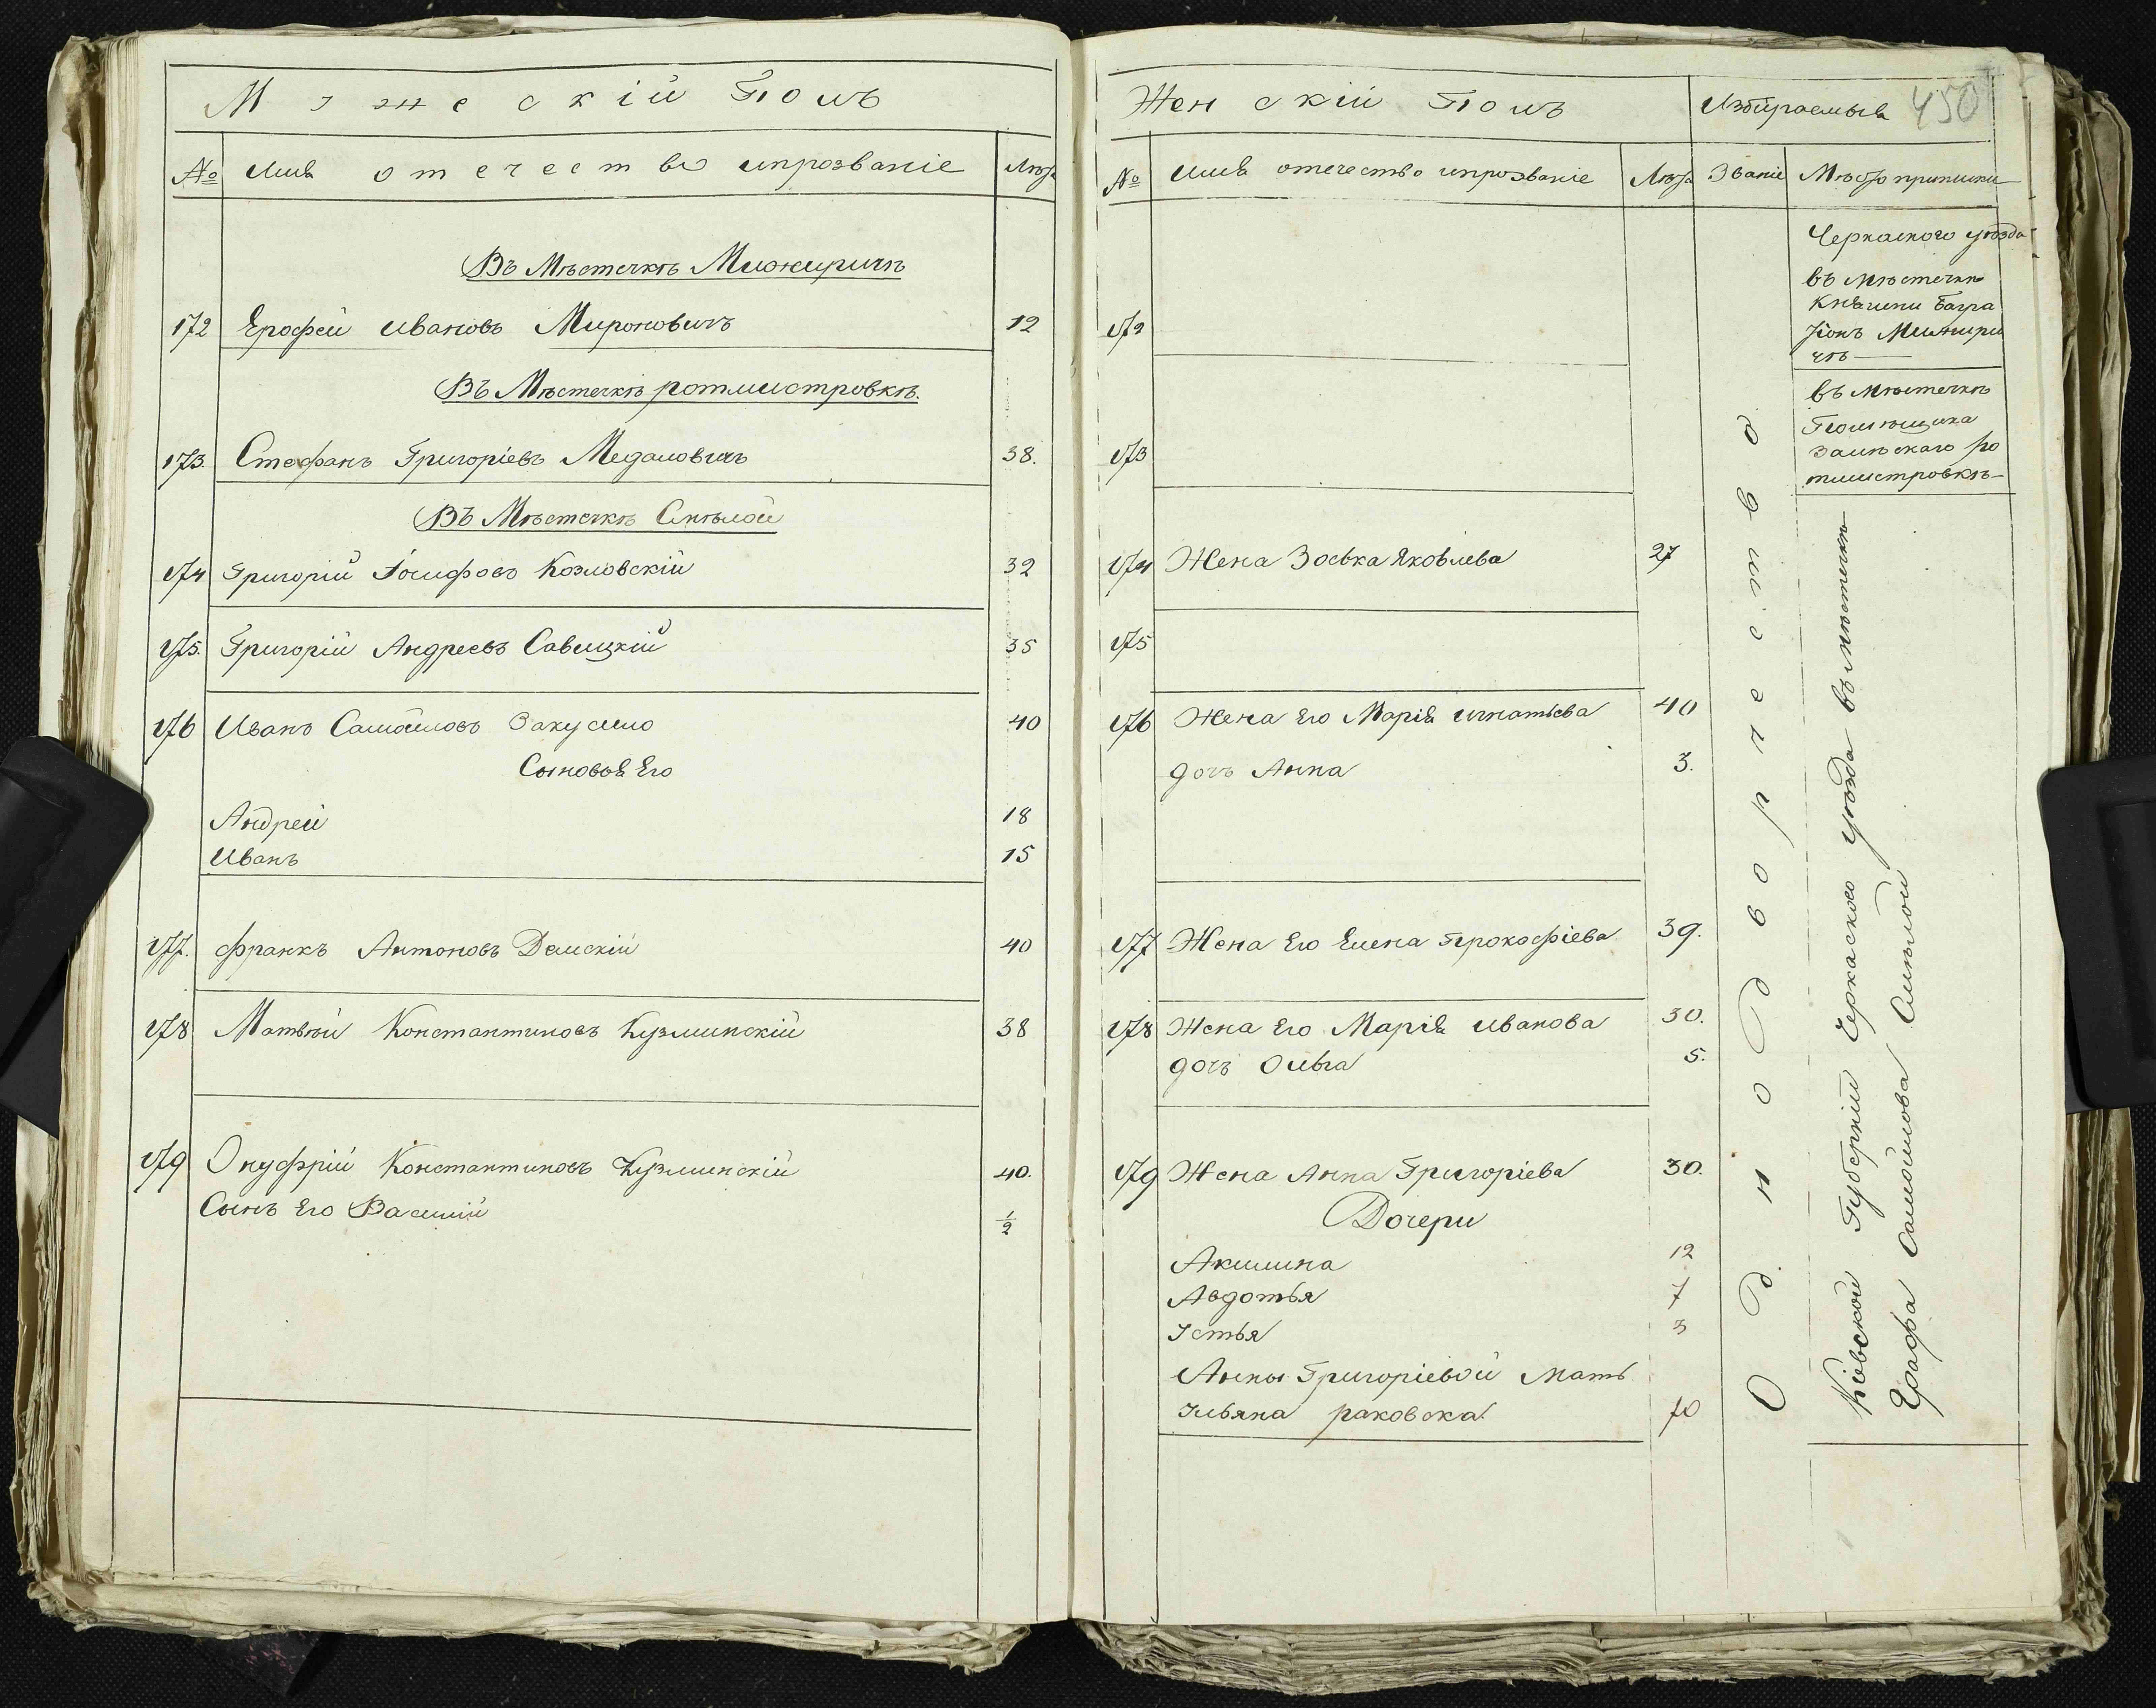 Мужескій Полъ
№ Имя отечество ипрозваніе Лѣта
Въ Мѣстечкѣ Мижиричѣ
172 Ерофей Ивановъ Мироновичъ 12
Въ Мѣстечкѣ ротмистровкѣ.
173. Стефанъ Григоріевъ Медаловичъ 38.
Въ Мѣстечкѣ Смѣлой
174 Григорій Іосифовъ Козловскій 32
175. Григорій Андреевъ Савицкій 35
176 Иванъ Самойловъ Закусило 40
Сыновья Его
Андрей 18
Иванъ 15
177. Франкъ Антоновъ Демскій 40
178 Матвѣй Константиновъ Кузминскій 38
179 Онуфрій Константиновъ Кузминскій 40.
Сынъ Его Василій 1/2
Женскій Полъ Избираемыя 450
№ Имя отечество ипрозваніе Лѣта Званіе Мѣсто приписки
172
173
174 Жена Зоська Яковлева 27
175
176 Жена Его Марія игнатьева 40
дочъ Анна 3.
177 Жена Его Елена Прокофіева 39.
178 Жена Его Марія иванова 30.
дочъ Ольга 5.
179 Жена Анна Григоріева 30.
Дочери
Акилина 12
Авдотья 7
Устья 3
Анны Григоріевой Мать
Ульяна раковска. 70
Однодворчество
Черкаского уѣзда
въ мѣстечкѣ
Княгини Багра
тіонъ Мижири
чѣ
въ мѣстечкѣ
Помѣщика
Залѣскаго ро
тмистровкѣ
Кіевской Губерніи Черкаского уѣзда въ мѣстечкѣ
Графа Самойлова Смѣлой